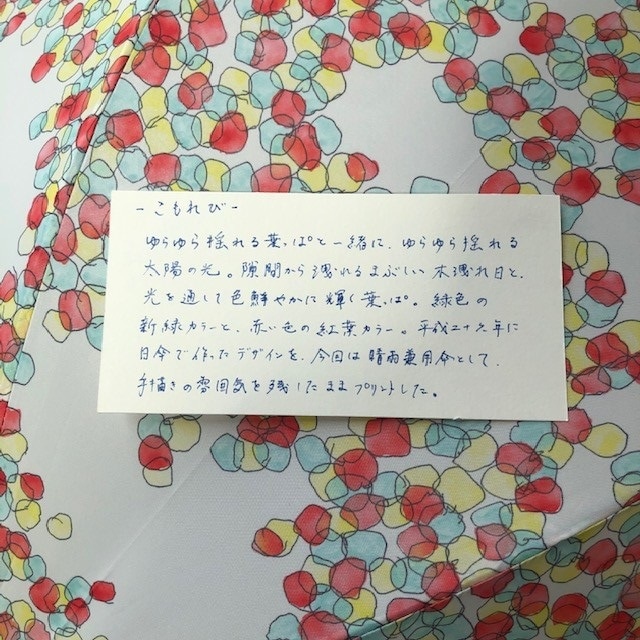 -こもれび-
ゆらゆら揺れる葉っぱと一緒に、ゆらゆら揺れる
太陽の光。隙間から溢れるまぶしい木漏れ日と、
光を通して色鮮やかに輝く葉っぱ。緑色の
新緑カラーと、赤い色の紅葉カラー。平成二十六年に
日傘で作ったデザインを、今回は晴雨兼用傘として、
手描きの雰囲気を残したままプリントした。